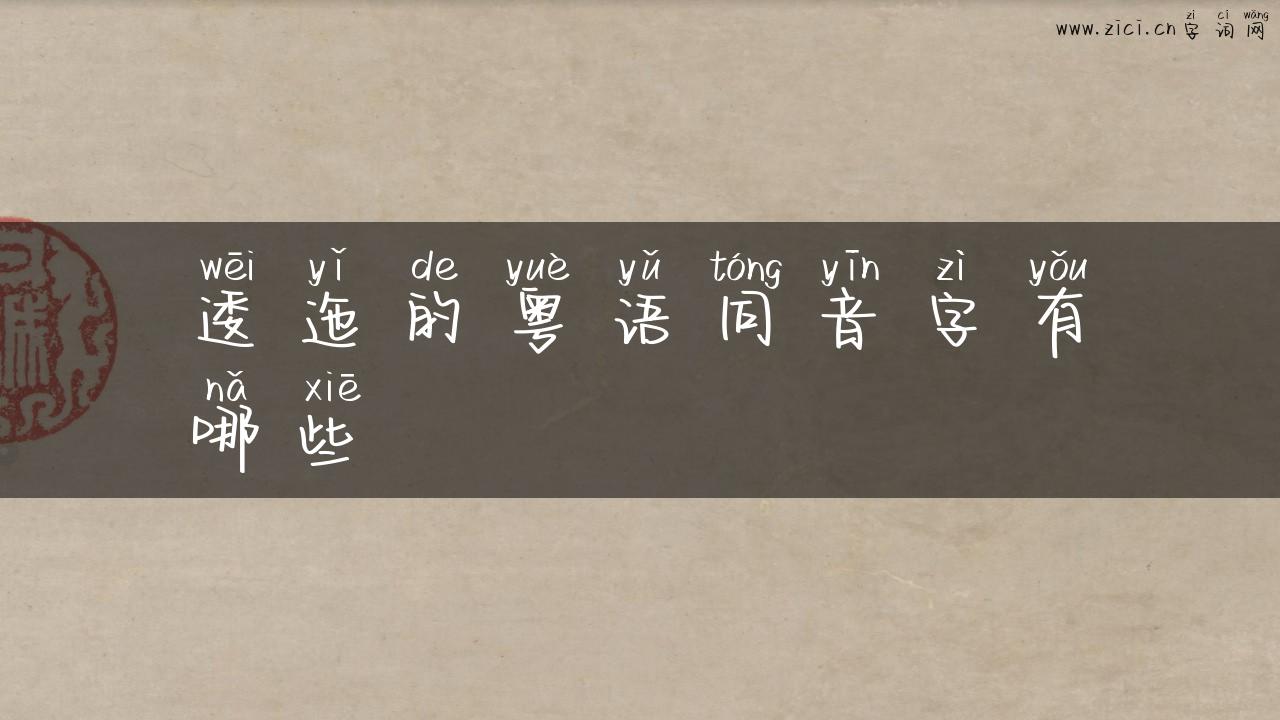 zì cí wǎng
www.zici.cn 字词网
wēi yǐ de yuè yǔ tóng yīn zì yǒu
逶迤的粤语同音字有
nǎ xiē
哪些